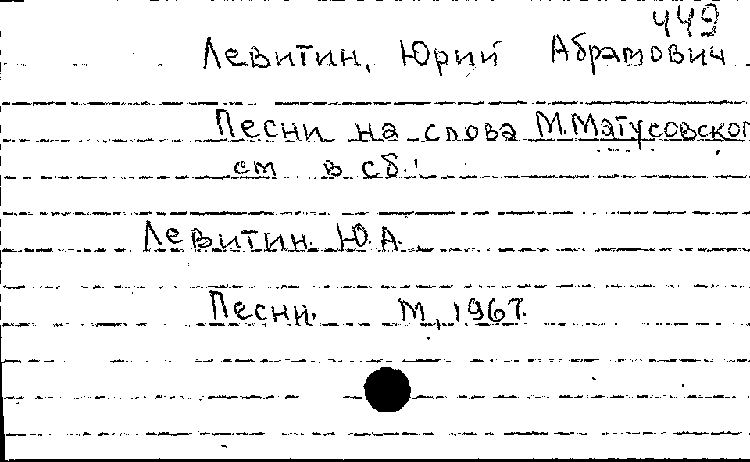 449
Левитин, Юрий Абрамович
Песни на слова М.Матусовског
см в сб.:
Левитин. Ю.А.
Песни. М, 1967.